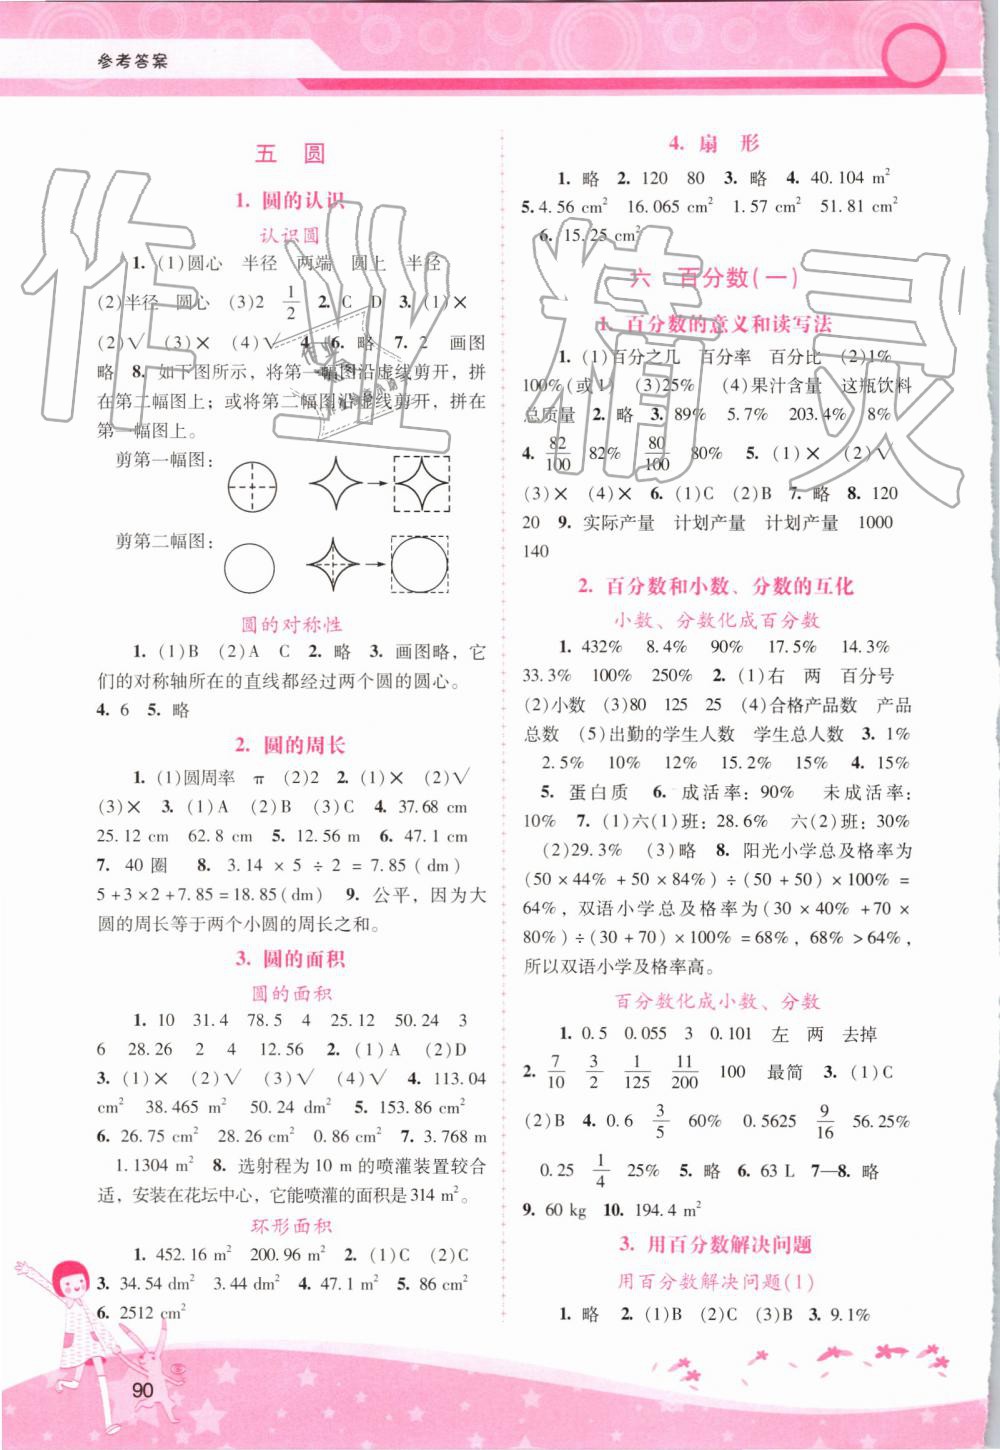 参考答案
五 圆
1. 圆的认识
认识圆
1. (1)圆心 半径 两端 圆上 半径
(2)半径 圆心 (3)2 1/2 2. C D 3. (1)×
(2)√ (3)× (4)√ 4—6. 略 7. 2 画图
略 8. 如下图所示，将第一幅图沿虚线剪开，拼
在第二幅图上；或将第二幅图沿虚线剪开，拼在
第一幅图上。
剪第一幅图：
剪第二幅图：
圆的对称性
1. (1)B (2)A C 2. 略 3. 画图略，它
们的对称轴所在的直线都经过两个圆的圆心。
4. 6 5. 略
2. 圆的周长
1. (1)圆周率 π (2)2 2. (1)× (2)√
(3)× 3. (1)A (2)B (3)C 4. 37.68 cm
25.12 cm 62.8 cm 5. 12.56 m 6. 47.1 cm
7. 40 圈 8. 3.14 × 5 ÷ 2 = 7.85 (dm)
5+3×2+7.85=18.85(dm) 9. 公平，因为大
圆的周长等于两个小圆的周长之和。
3. 圆的面积
圆的面积
1. 10 31.4 78.5 4 25.12 50.24 3
6 28.26 2 4 12.56 2. (1)A (2)D
3. (1)× (2)√ (3)√ (4)√ 4. 113.04
cm² 38.465 m² 50.24 dm² 5. 153.86 cm²
6. 26.75 cm² 28.26 cm² 0.86 cm² 7. 3.768 m
1.1304 m² 8. 选射程为 10 m 的喷灌装置较合
适，安装在花坛中心，它能喷灌的面积是 314 m²。
环形面积
1. 452.16 m² 200.96 m² 2. (1)C (2)C
3. 34.54 dm² 3.44 dm² 4. 47.1 m² 5. 86 cm²
6. 2512 cm²
90
4. 扇 形
1. 略 2. 120 80 3. 略 4. 40.104 m²
5. 4.56 cm² 16.065 cm² 1.57 cm² 51.81 cm²
6. 15.25 cm²
六 百分数(一)
1. 百分数的意义和读写法
1. (1)百分之几 百分率 百分比 (2)1%
100%(或1) (3)25% (4)果汁含量 这瓶饮料
总质量 2. 略 3. 89% 5.7% 203.4% 8%
4. 82/100 82% 80/100 80% 5. (1)× (2)√
(3)× (4)× 6. (1)C (2)B 7. 略 8. 120
20 9. 实际产量 计划产量 计划产量 1000
140
2. 百分数和小数、分数的互化
小数、分数化成百分数
1. 432% 8.4% 90% 17.5% 14.3%
33.3% 100% 250% 2. (1)右 两 百分号
(2)小数 (3)80 125 25 (4)合格产品数 产品
总数 (5)出勤的学生人数 学生总人数 3. 1%
2.5% 10% 12% 15.2% 15% 4. 15%
5. 蛋白质 6. 成活率：90% 未成活率：
10% 7. (1)六(1)班：28.6% 六(2)班：30%
(2)29.3% (3)略 8. 阳光小学总及格率为
(50×44%+50×84%)÷(50+50)×100%=
64%，双语小学总及格率为(30×40%+70×
80%)÷(30+70)×100%=68%，68%>64%，
所以双语小学及格率高。
百分数化成小数、分数
1. 0.5 0.055 3 0.101 左 两 去掉
2. 7/10 3/2 1/125 11/200 100 最简 3. (1)C
(2)B 4. 0.6 3/5 60% 0.5625 9/16 56.25%
0.25 1/4 25% 5. 略 6. 63 L 7—8. 略
9. 60 kg 10. 194.4 m²
3. 用百分数解决问题
用百分数解决问题(1)
1. 略 2. (1)B (2)C (3)B 3. 9.1%
作业精灵